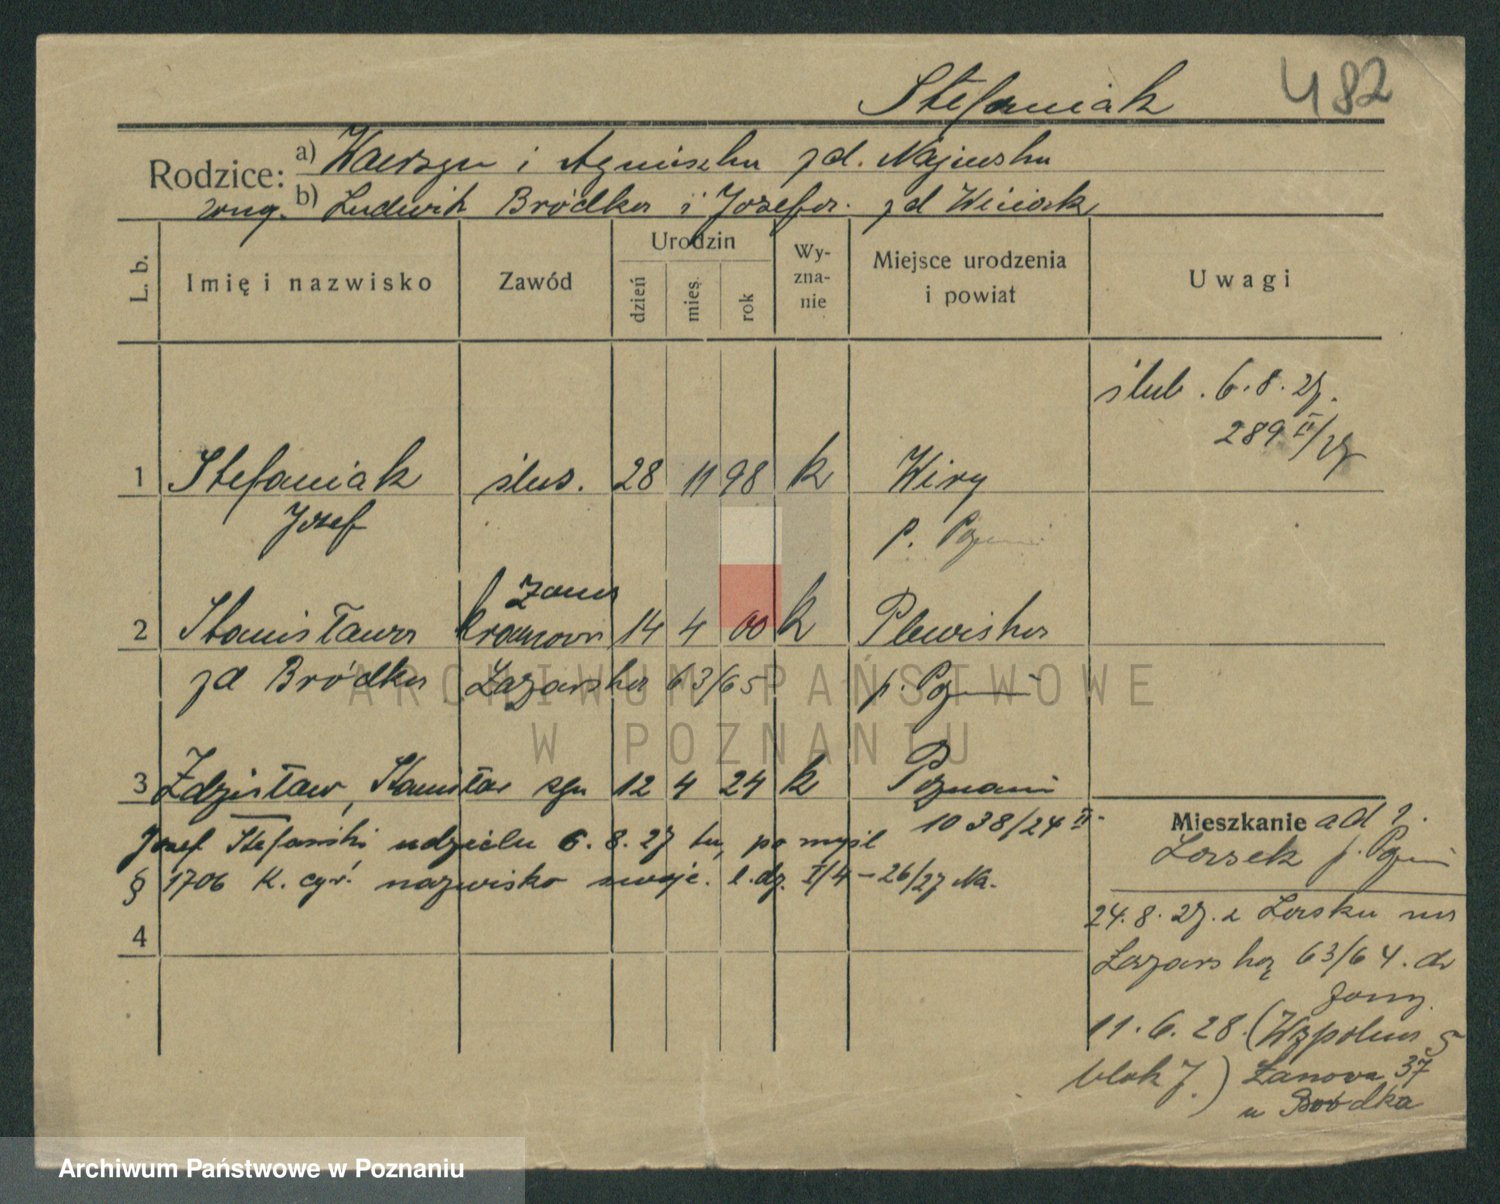 Stefaniak 482
Rodzice: a) Wawrzyn i Agnieszka zd. Majewska
b) Ludwik Bródka i Józefa zd Winiak
L. b. Imię i nazwisko Zawód Urodzin dzień mies. rok Wy-zna-nie Miejsce urodzenia i powiat Uwagi
ślub. 6.8.27.
289 II/27
1 Stefaniak ślus. 28 11 98 k Wiry
Józef p. Pozn
żona
2 Stanisława krawcowa 14 4 00 k Plewiska
zd Bródka Łazarska 63/65 p. Pozn
3 Zdzisław, Stanisław syn 12 4 24 k Poznań
1038/24 II
Józef Stefański udzielił 6.8.27 tu, po myśl
§ 1706 K. cyw. nazwisko swoje. l.dz. I/4-26/27 Na.
4
Mieszkanie ad 2.
Lasek p. Pozn
24.8.27. z Lasku na
Łazarską 63/64. do
żony.
11.6.28. (Wspólna 5
blok J.) Łanowa 37
u Bródka
ARCHIWUM PAŃSTWOWE
W POZNANIU
Archiwum Państwowe w Poznaniu